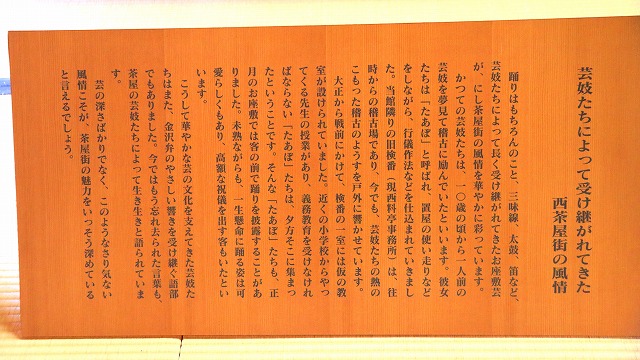 芸妓たちによって受け継がれてきた
西茶屋街の風情
踊りはもちろんのこと、三味線、太鼓、笛など、
芸妓たちによって長く受け継がれてきたお座敷芸
が、にし茶屋街の風情を華やかに彩っています。
かつての芸妓たちは、一〇歳の頃から一人前の
芸妓を夢見て稽古に励んでいたといいます。彼女
たちは「たあぼ」と呼ばれ、置屋の使い走りなど
をしながら、行儀作法などを仕込まれていきまし
た。当館隣りの旧検番(現西料亭事務所)は、往
時からの稽古場であり、今でも、芸妓たちの熱の
こもった稽古のようすを戸外に響かせています。
大正から戦前にかけて、検番の一室には仮の教
室が設けられていました。近くの小学校からやっ
てくる先生の授業があり、義務教育を受けなけれ
ばならない「たあぼ」たちは、夕方そこに集まっ
たということです。そんな「たあぼ」たちも、正
月のお座敷では客の前で踊りを披露することがあ
りました。未熟ながらも、一生懸命に踊る姿は可
愛らしくもあり、高額な祝儀を出す客もいたとい
います。
こうして華やかな芸の文化を支えてきた芸妓た
ちはまた、金沢弁のやさしい響きを受け継ぐ語部
でもありました。今ではもう忘れ去られた言葉も、
茶屋の芸妓たちによって生き生きと語られていま
す。
芸の深さばかりでなく、このようなさり気ない
風情こそが、茶屋街の魅力をいっそう深めている
と言えるでしょう。